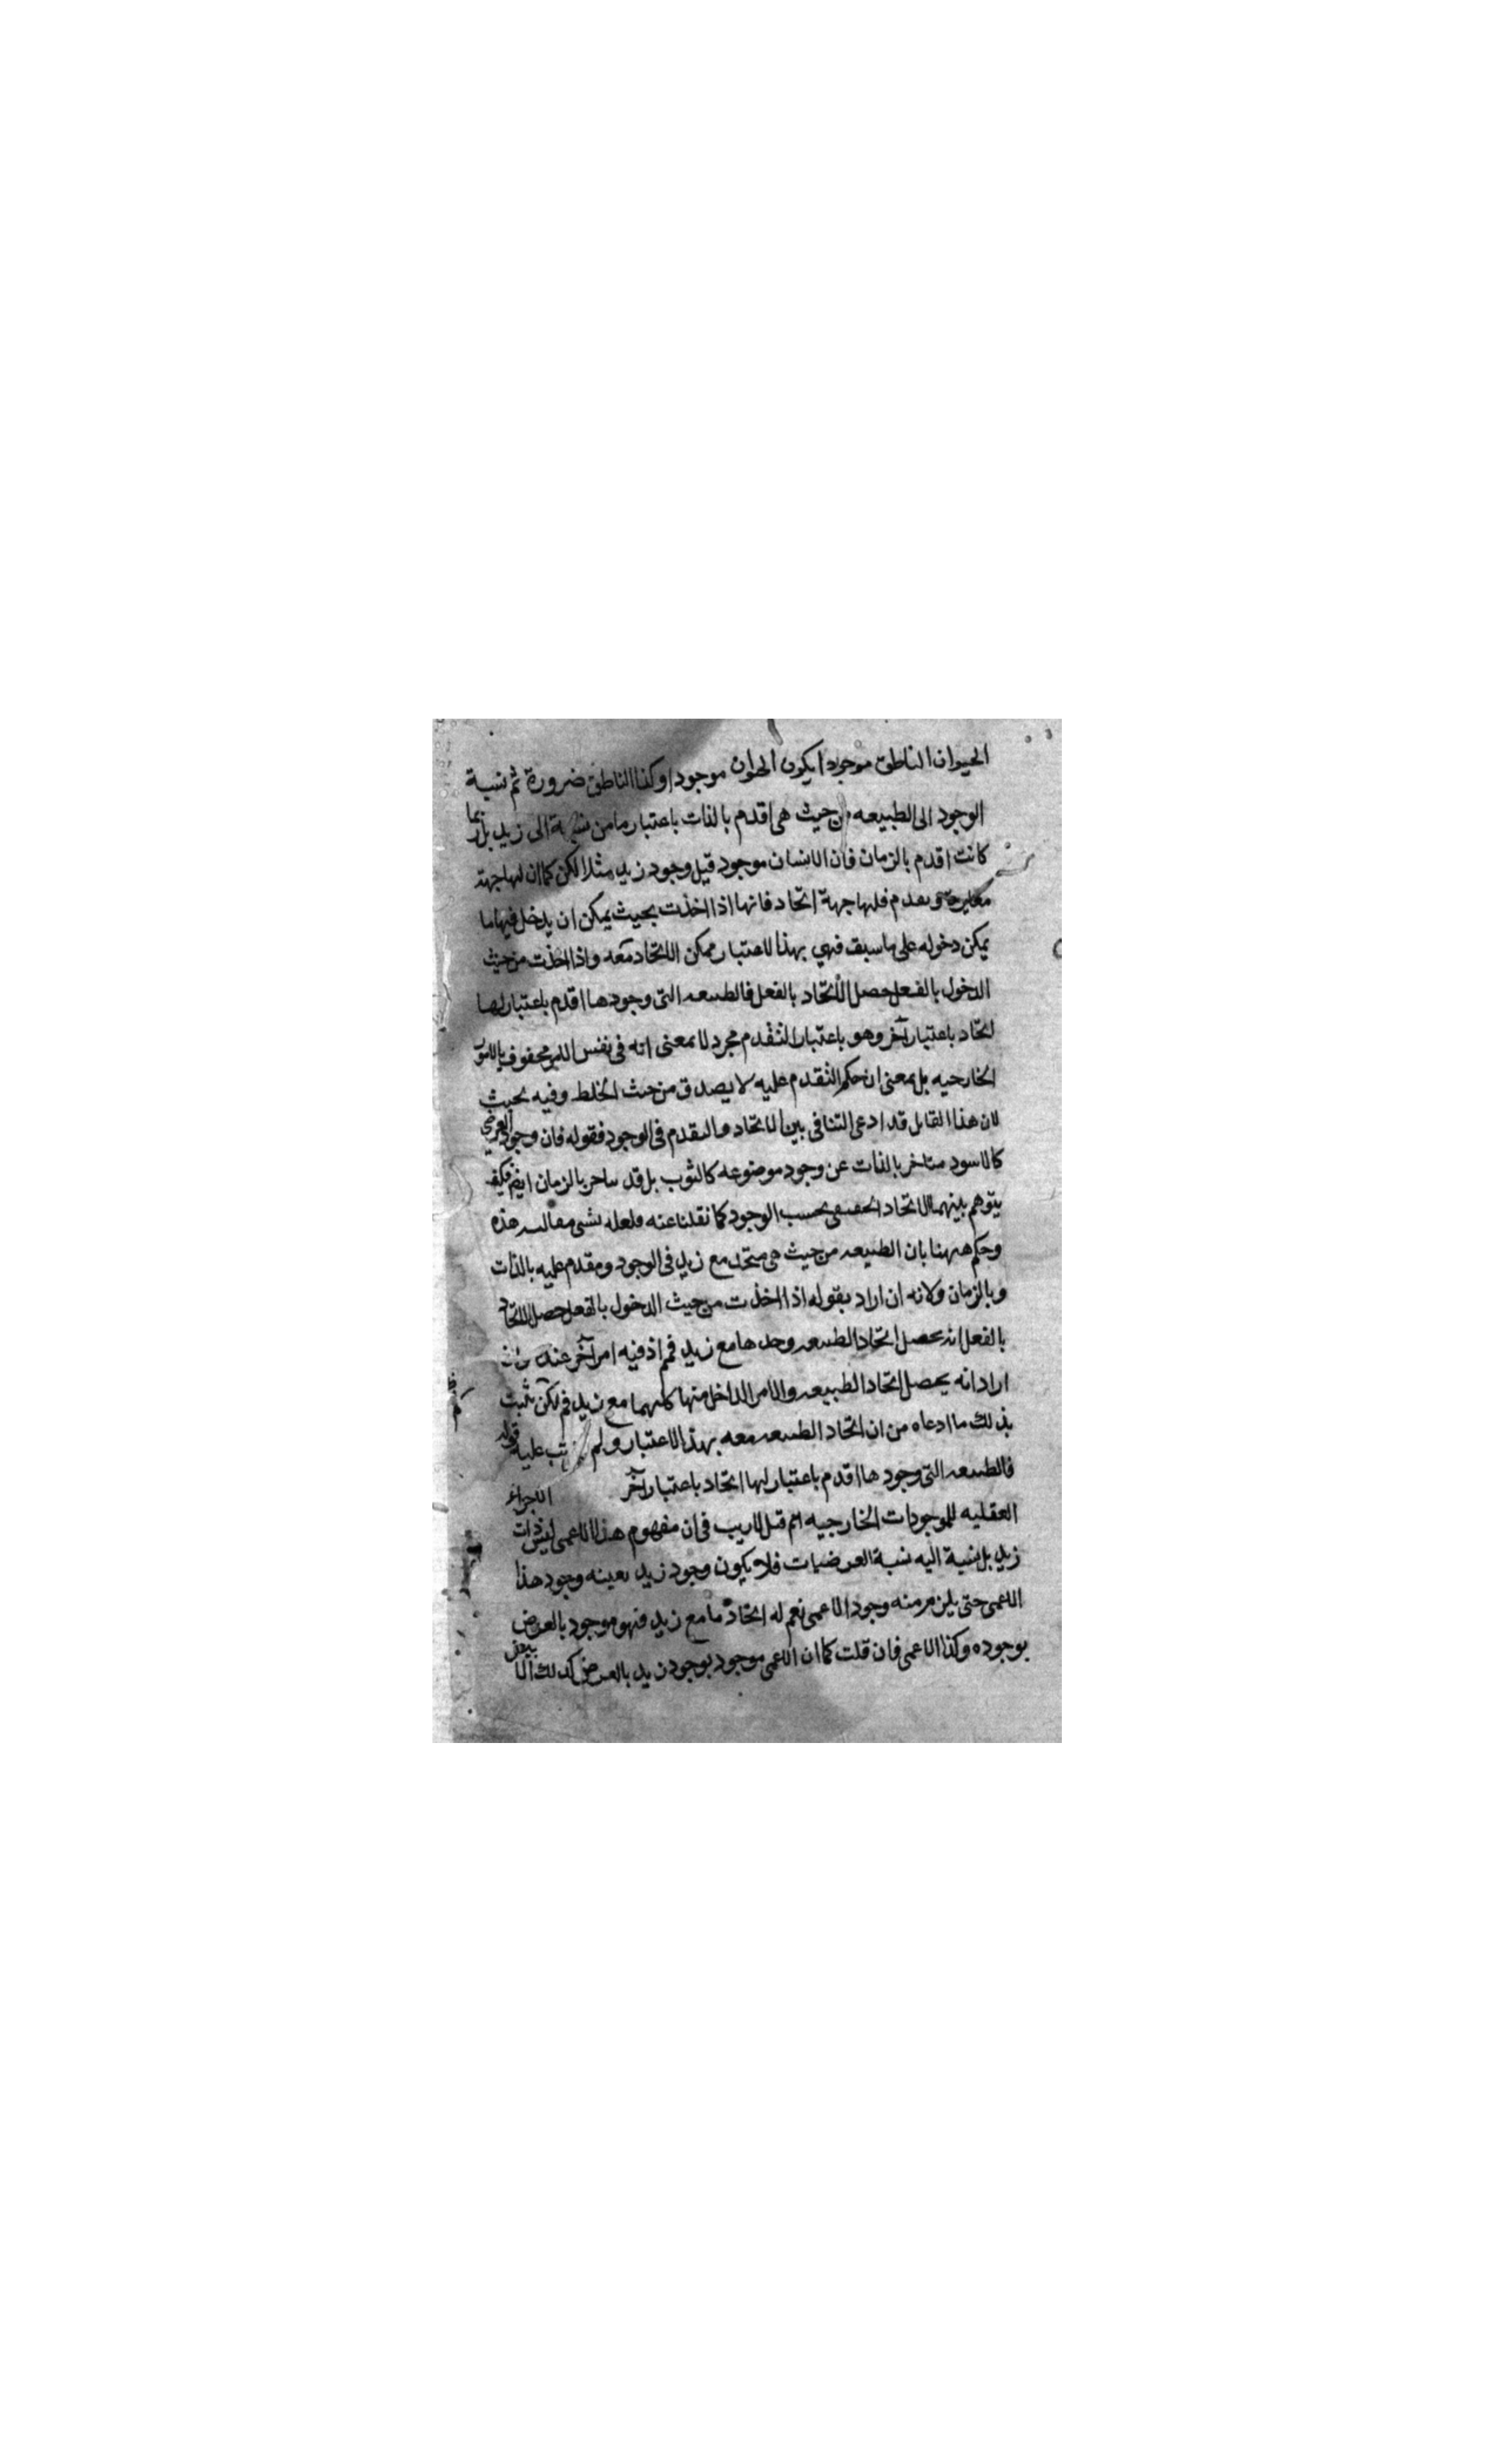 الحيوان الناطق موجودا يكون الحيوان موجودا وكذا الناطق ضرورة ثم نسبة
الوجود الى الطبيعه من حيث هى اقدم بالذات باعتبار ما من نسبة الى زيد بل ربما
كانت اقدم بالزمان فان الانسان موجود قبل وجود زيد مثلا لكن كما ان لها جهة
مغايرة وتقدم فلها جهة اتحاد فانها اذا اخذت بحيث يمكن ان يدخل فيها ما
يمكن دخوله على ما سبق فهي بهذا الاعتبار ممكن الاتحاد معه واذا اخذت من حيث
الدخول بالفعل حصل الاتحاد بالفعل فالطبيعه التى وجودها اقدم باعتبار لها
اتحاد باعتبار آخر وهو باعتبار التقدم مجرد لا بمعنى انه فى نفس الامر محفوف بالامور
الخارجيه بل بمعنى ان حكم التقدم عليه لا يصدق من حيث الخلط وفيه بحيث
لان هذا القايل قد ادعى التنافى بين الاتحاد والتقدم فى الوجود فقوله فان وجود العرضي
كالاسود متاخر بالذات عن وجود موضوعه كالثوب بل قد يتاخر بالزمان ايض فكيف
يتوهم بينهما الاتحاد الحقيقى بحسب الوجود كما نقلنا عنه فلعله نسى مقالته هذه
وحكم ههنا بان الطبيعه من حيث هى متحد مع زيد فى الوجود ومقدم عليه بالذات
وبالزمان ولانه ان اراد بقوله اذا اخذت من حيث الدخول بالفعل حصل الاتحاد
بالفعل انه يحصل اتحاد الطبيعه وحدها مع زيد فمم اذ فيه امر آخر عنه وان
اراد انه يحصل اتحاد الطبيعه والامر الداخل منها كلهما مع زيد فم لكن يثبت
بذلك ما ادعاه من ان اتحاد الطبيعه معه بهذا الاعتبار ولم يترتب عليه قوله
فالطبيعه التى وجودها اقدم باعتبار لها اتحاد باعتبار آخر الاجزاء
العقليه للموجودات الخارجيه اه قيل لا ريب فى ان مفهوم هذا الاعمى ليس ذات
زيد بل نسبة اليه نسبة العرضيات فلا يكون وجود زيد بعينه وجود هذا
الاعمى حتى يلزم منه وجود الاعمى نعم له اتحاد ما مع زيد فهو موجود بالعرض
بوجوده وكذا الاعمى فان قلت كما ان الاعمى موجود بوجود زيد بالعرض كذلك الابيض